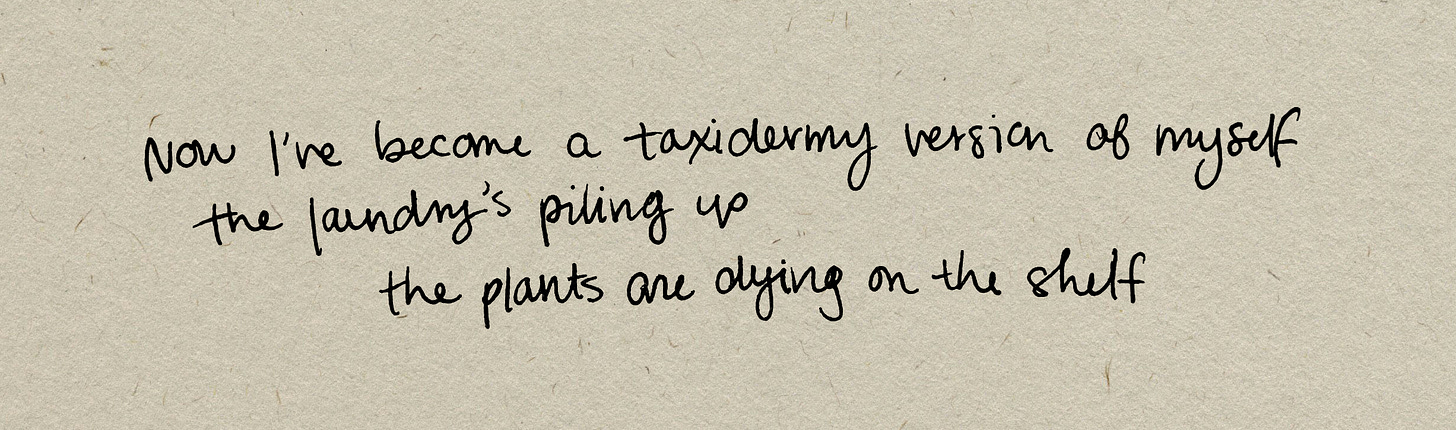 Now I've become a taxidermy version of myself
the laundry's piling up
the plants are dying on the shelf